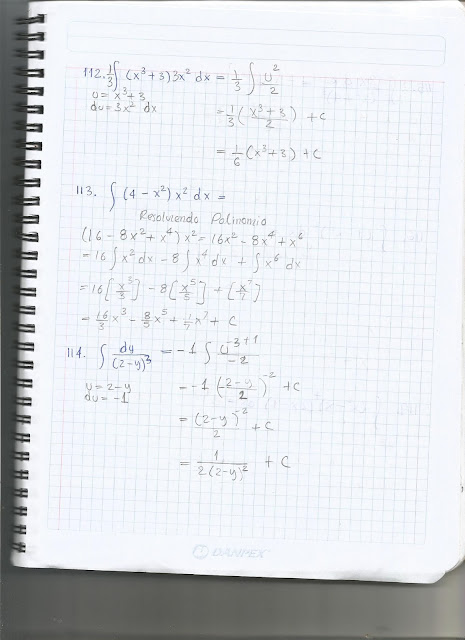 112. 1/3 ∫ (x³+3) 3x² dx = 1/3 ∫ u²/2
u = x³+3
du = 3x² dx
= 1/3 (x³+3/2) + C
= 1/6 (x³+3) + C
113. ∫ (4 - x²) x² dx =
Resolviendo Polinomio
(16 - 8x² + x⁴) x² = 16x² - 8x⁴ + x⁶
= 16 ∫ x² dx - 8 ∫ x⁴ dx + ∫ x⁶ dx
= 16 [x³/3] - 8 [x⁵/5] + [x⁷/7]
= 16/3 x³ - 8/5 x⁵ + 1/7 x⁷ + C
114. ∫ dy/(2-y)³ = -1 ∫ u⁻³⁺¹/-2
u = 2-y
du = -1
= -1 (2-y/-2)⁻² + C
= (2-y)⁻²/2 + C
= 1/2(2-y)² + C
DANPEX